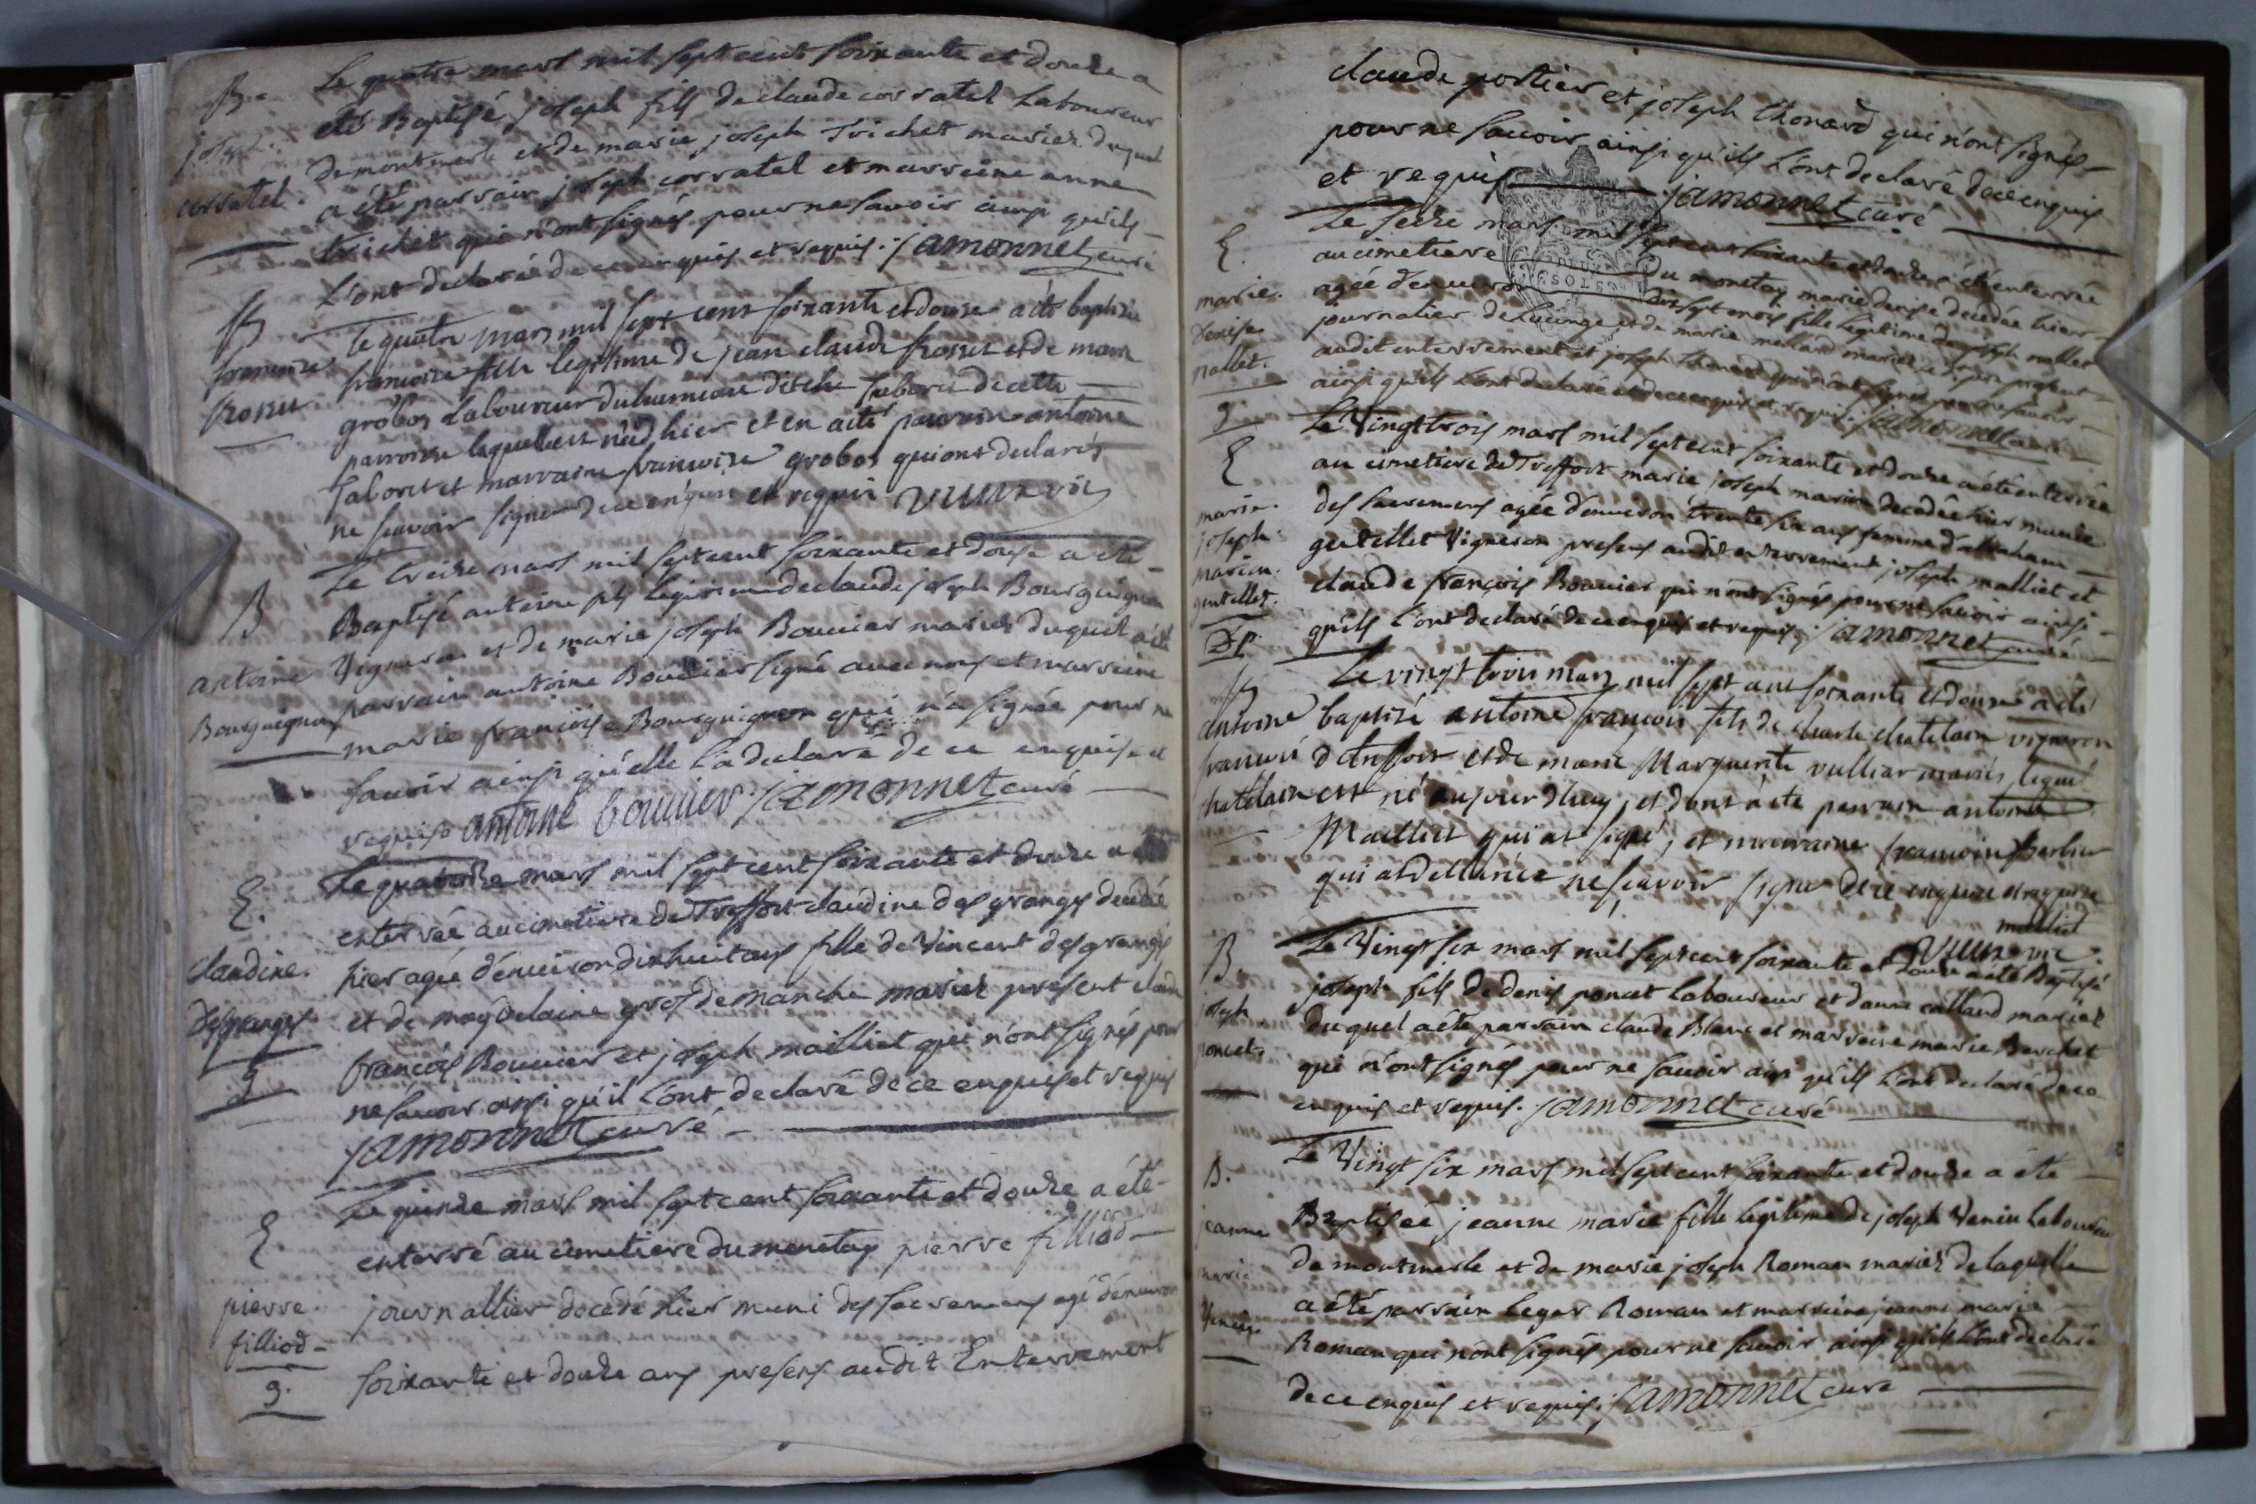 B.
Le quatre mars mil sept cent soixante et douze a
été Baptisé joseph fils de claude corratel Laboureur
joseph
corratel.
de montmerle et de marie joseph Trichet mariez duquel
a été parrain joseph corratel et marreine anne
trichet qui n'ont signés pour ne savoir ainsi qu'ils
L'ont declaré de ce enquis et requis. jamonnet curé
B
francoise
Le quatre mars mil sept cent soixante et douze a été baptisée
francoise fille legitime de jean claude et de marie
grobos Laboureur du hameau de cette
parroisse laquelle est née d'hier et en a été parrain antoine
et marraine francoise grobos qui ont declarés
ne scavoir signer de ce enquis et requis
B
antoine
Bourguignon
Le treize mars mil sept cent soixante et douze a été
Baptisé antoine fils legitime de claude joseph Bourguignon
Vigneron et de marie joseph Bouvier mariez duquel a été
parrain antoine Bouvier signé avec nous et marreine
marie françoise Bourguignon qui n'a signée pour ne
savoir ainsi qu'elle l'a declaré de ce enquise et
requise antoine bouvier jamonnet curé
E.
claudine.
Desgranges
g
Le quatorze mars mil sept cent soixante et douze a été
enterrée au cimetiere de Treffort claudine desgranges decedée
hier agée d'environ dix huit ans fille de Vincent desgranges
et de magdelaine gros demanche mariez présent claude
françois Bouvier et joseph mailliet qui n'ont signés pour
ne savoir ainsi qu'il l'ont declaré de ce enquis et requis
jamonnet curé
E
pierre
filliod
g.
Le quinze mars mil sept cent soixante et douze a été
enterré au cimetiere du monetay pierre filliod
journallier décédé hier muni des sacremens agé d'environ
soixante et douze ans presens audit Enterrement
claude portier et joseph thonard qui n'ont signés
pour ne savoir ainsi qu'ils L'ont declaré de ce enquis
et requis jamonnet curé
E.
marie.
Denise
nallet.
g.
Le seize mars mil sept cent soixante et douze a été enterrée
au cimetiere du monetay marie denise decedée hier
agée d'environ dix sept mois fille legitime de joseph nallet
journalier de Lucinge et de marie mariez
audit enterrement et joseph thonard qui n'ont signés pour ne savoir
ainsi qu'ils L'ont declaré de ce enquis et requis. jamonnet curé
E
marie.
joseph.
marion.
gentillet.
Le Vingt trois mars mil sept cent soixante et douze a été enterrée
au cimetiere de Treffort marie joseph marion decedée hier munie
des sacremens agée d'environ trente six ans femme d'abraham
gentillet Vigneron presens audit enterrement joseph malliet et
claude françois Bouvier qui n'ont signés pour ne savoir ainsi
qu'ils L'ont declaré de ce enquis et requis. jamonnet curé
B
antoine
francois
chatelain
Le vingt trois mars mil sept cent soixante et douze a été
baptisé antoine francois fils de charle chatelain vigneron
de Treffort et de marie Marguerite vulliar mariés lequel
est né aujourdhuy, et dont a été parrain antoine
Malliet qui at signé, et marraine francoise berlier
qui at declarée ne scavoir signer de ce enquise et requise
malliet
B.
joseph
poncet.
Le Vingt six mars mil sept cent soixante et douze a été Baptisé
joseph fils de denis poncet laboureur et d'anne calland mariez
duquel a été parrain claude Blanc et marreine marie Berchet
qui n'ont signés pour ne savoir ainsi qu'ils L'ont declaré de ce
enquis et requis. jamonnet curé
B.
jeanne
marie
Venin
Le Vingt six mars mil sept cent soixante et douze a été
Baptisée jeanne marie fille legitime de joseph Venin Laboureur
de montmerle et de marie joseph Roman mariez de laquelle
a été parrain leger Roman et marreine jeanne marie
Roman qui n'ont signés pour ne savoir ainsi qu'ils L'ont declaré
de ce enquis et requis. jamonnet curé